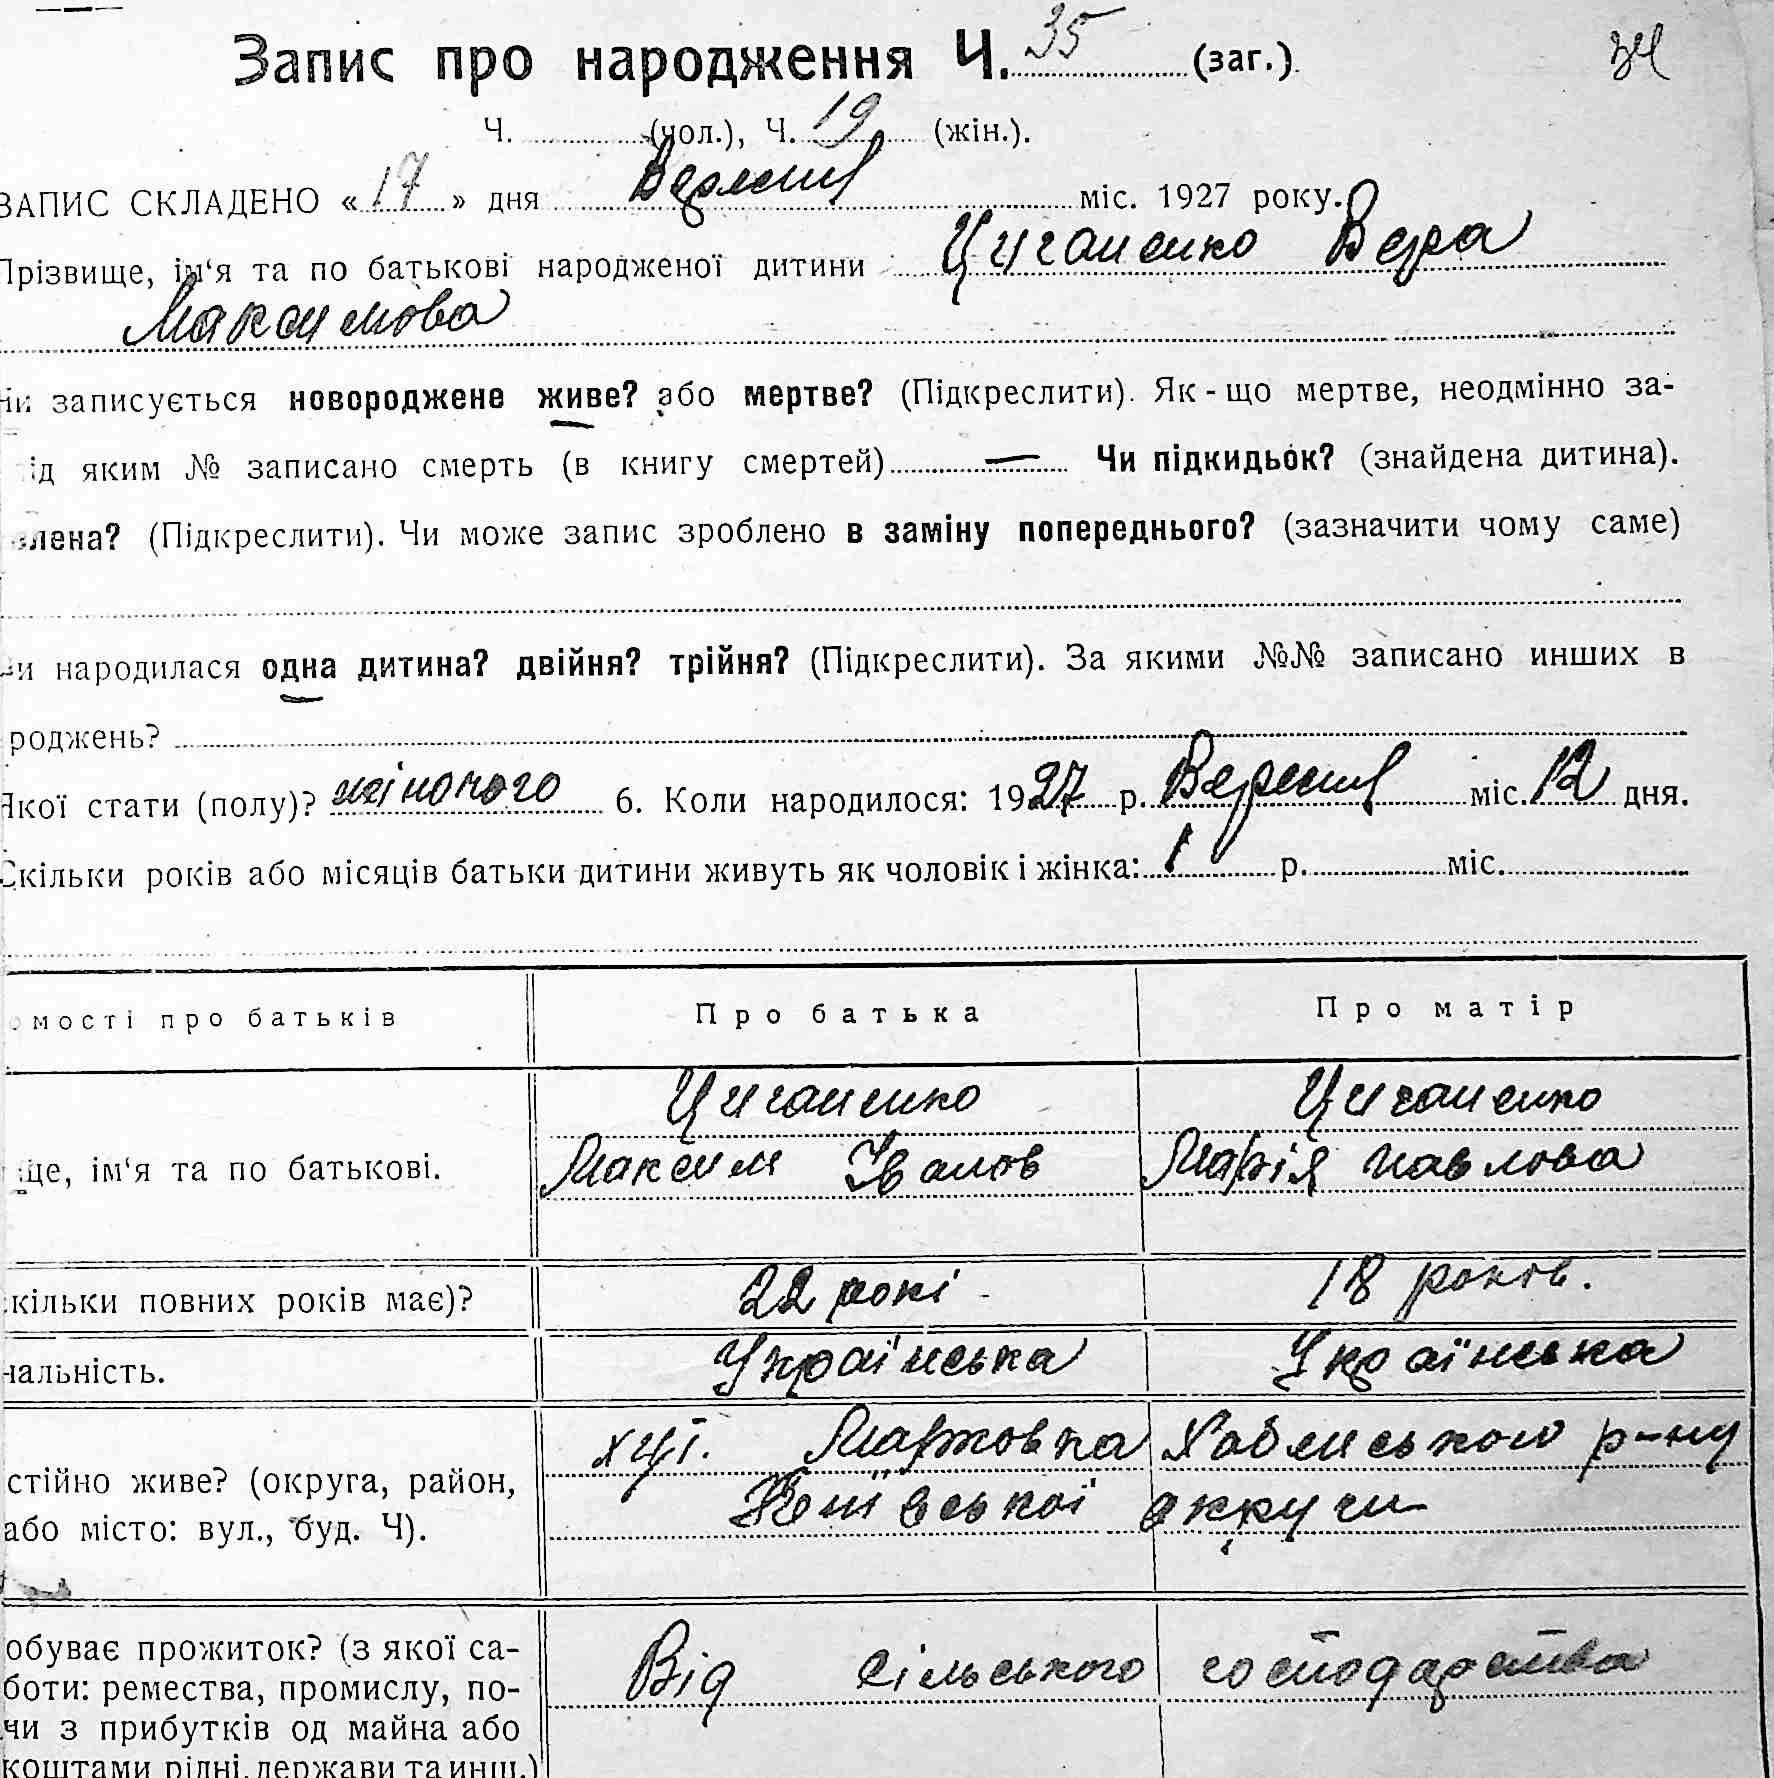 Запис про народження Ч. 35 (заг.). 34
Ч. (чол.), Ч. 19 (жін.).
ЗАПИС СКЛАДЕНО «17» дня Вересня міс. 1927 року.
Прізвище, ім‘я та по батькові народженої дитини Циганенко Вера
Максимова
Чи записується новороджене живе? або мертве? (Підкреслити). Як-що мертве, неодмінно за-
ід яким № записано смерть (в книгу смертей) — Чи підкидьок? (знайдена дитина).
влена? (Підкреслити). Чи може запис зроблено в заміну попереднього? (зазначити чому саме)
Чи народилася одна дитина? двійня? трійня? (Підкреслити). За якими №№ записано инших в
роджень?
Якої стати (полу)? жіночого 6. Коли народилося: 1927 р. Вересня міс. 12 дня.
Скільки років або місяців батьки дитини живуть як чоловік і жінка: 1 р. міс.
омості про батьків Про батька Про матір
Циганенко Циганенко
ще, ім‘я та по батькові. Максим Іванов Марія Павлова
кільки повних років має)? 22 рокі 18 років.
нальність. Українська Українська
хут. Мартовка Хабенського р-ну
стійно живе? (округа, район,
Київської округи
або місто: вул., буд. Ч).
обуває прожиток? (з якої са-
Від сільського господарства
боти: ремества, промислу, по-
чи з прибутків од майна або
коштами рідні, держави та инш.)